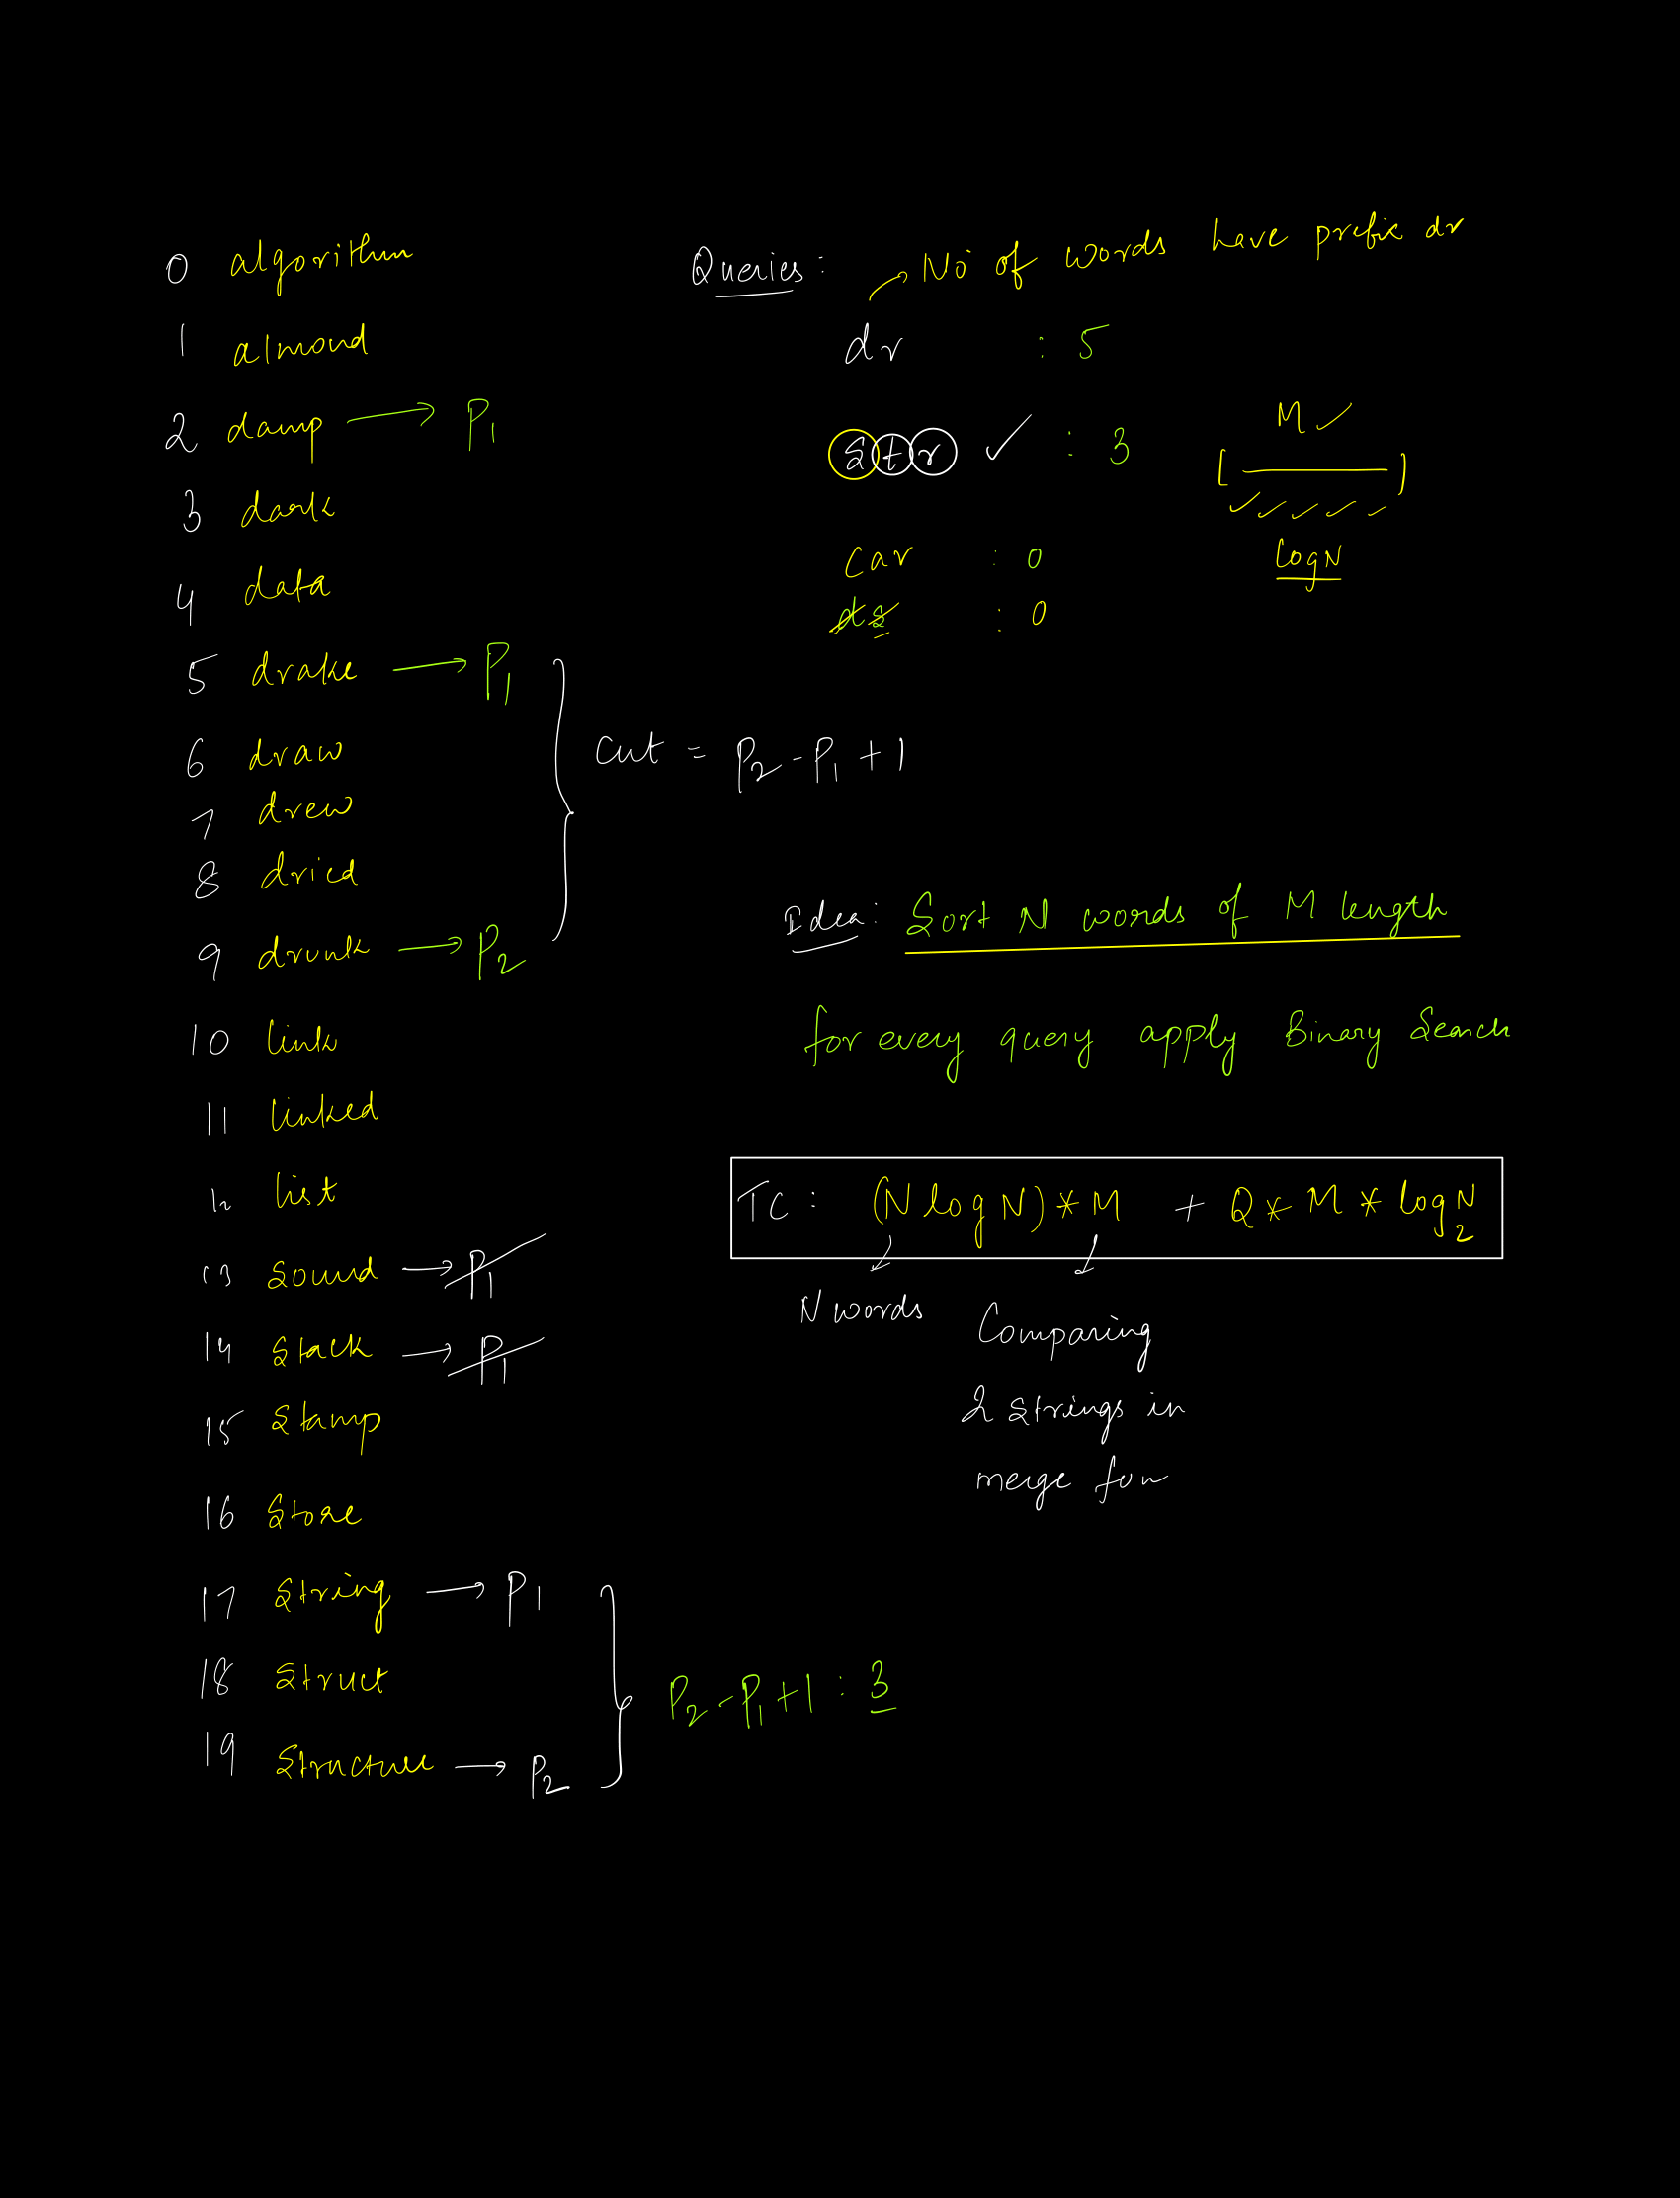 0 algorithm
1 almond
2 damp → P1
3 dark
4 data
5 drake → P1
6 draw
7 drew
8 dried
9 drunk → P2
cnt = P2 - P1 + 1
10 link
11 linked
12 list
13 sound → P1
14 stack → P1
15 stamp
16 store
17 string → P1
18 struct
19 structure → P2
P2 - P1 + 1 : 3
Queries : → No of words have prefix dr
dr : 5
str ✓ : 3
car : 0
ds : 0
M ✓
[ ]
✓ ✓ ✓ ✓ ✓
logN
Idea : Sort N words of M length
for every query apply Binary Search
TC : (N log N) * M + Q * M * log2N
N words
Comparing
2 strings in
merge fun